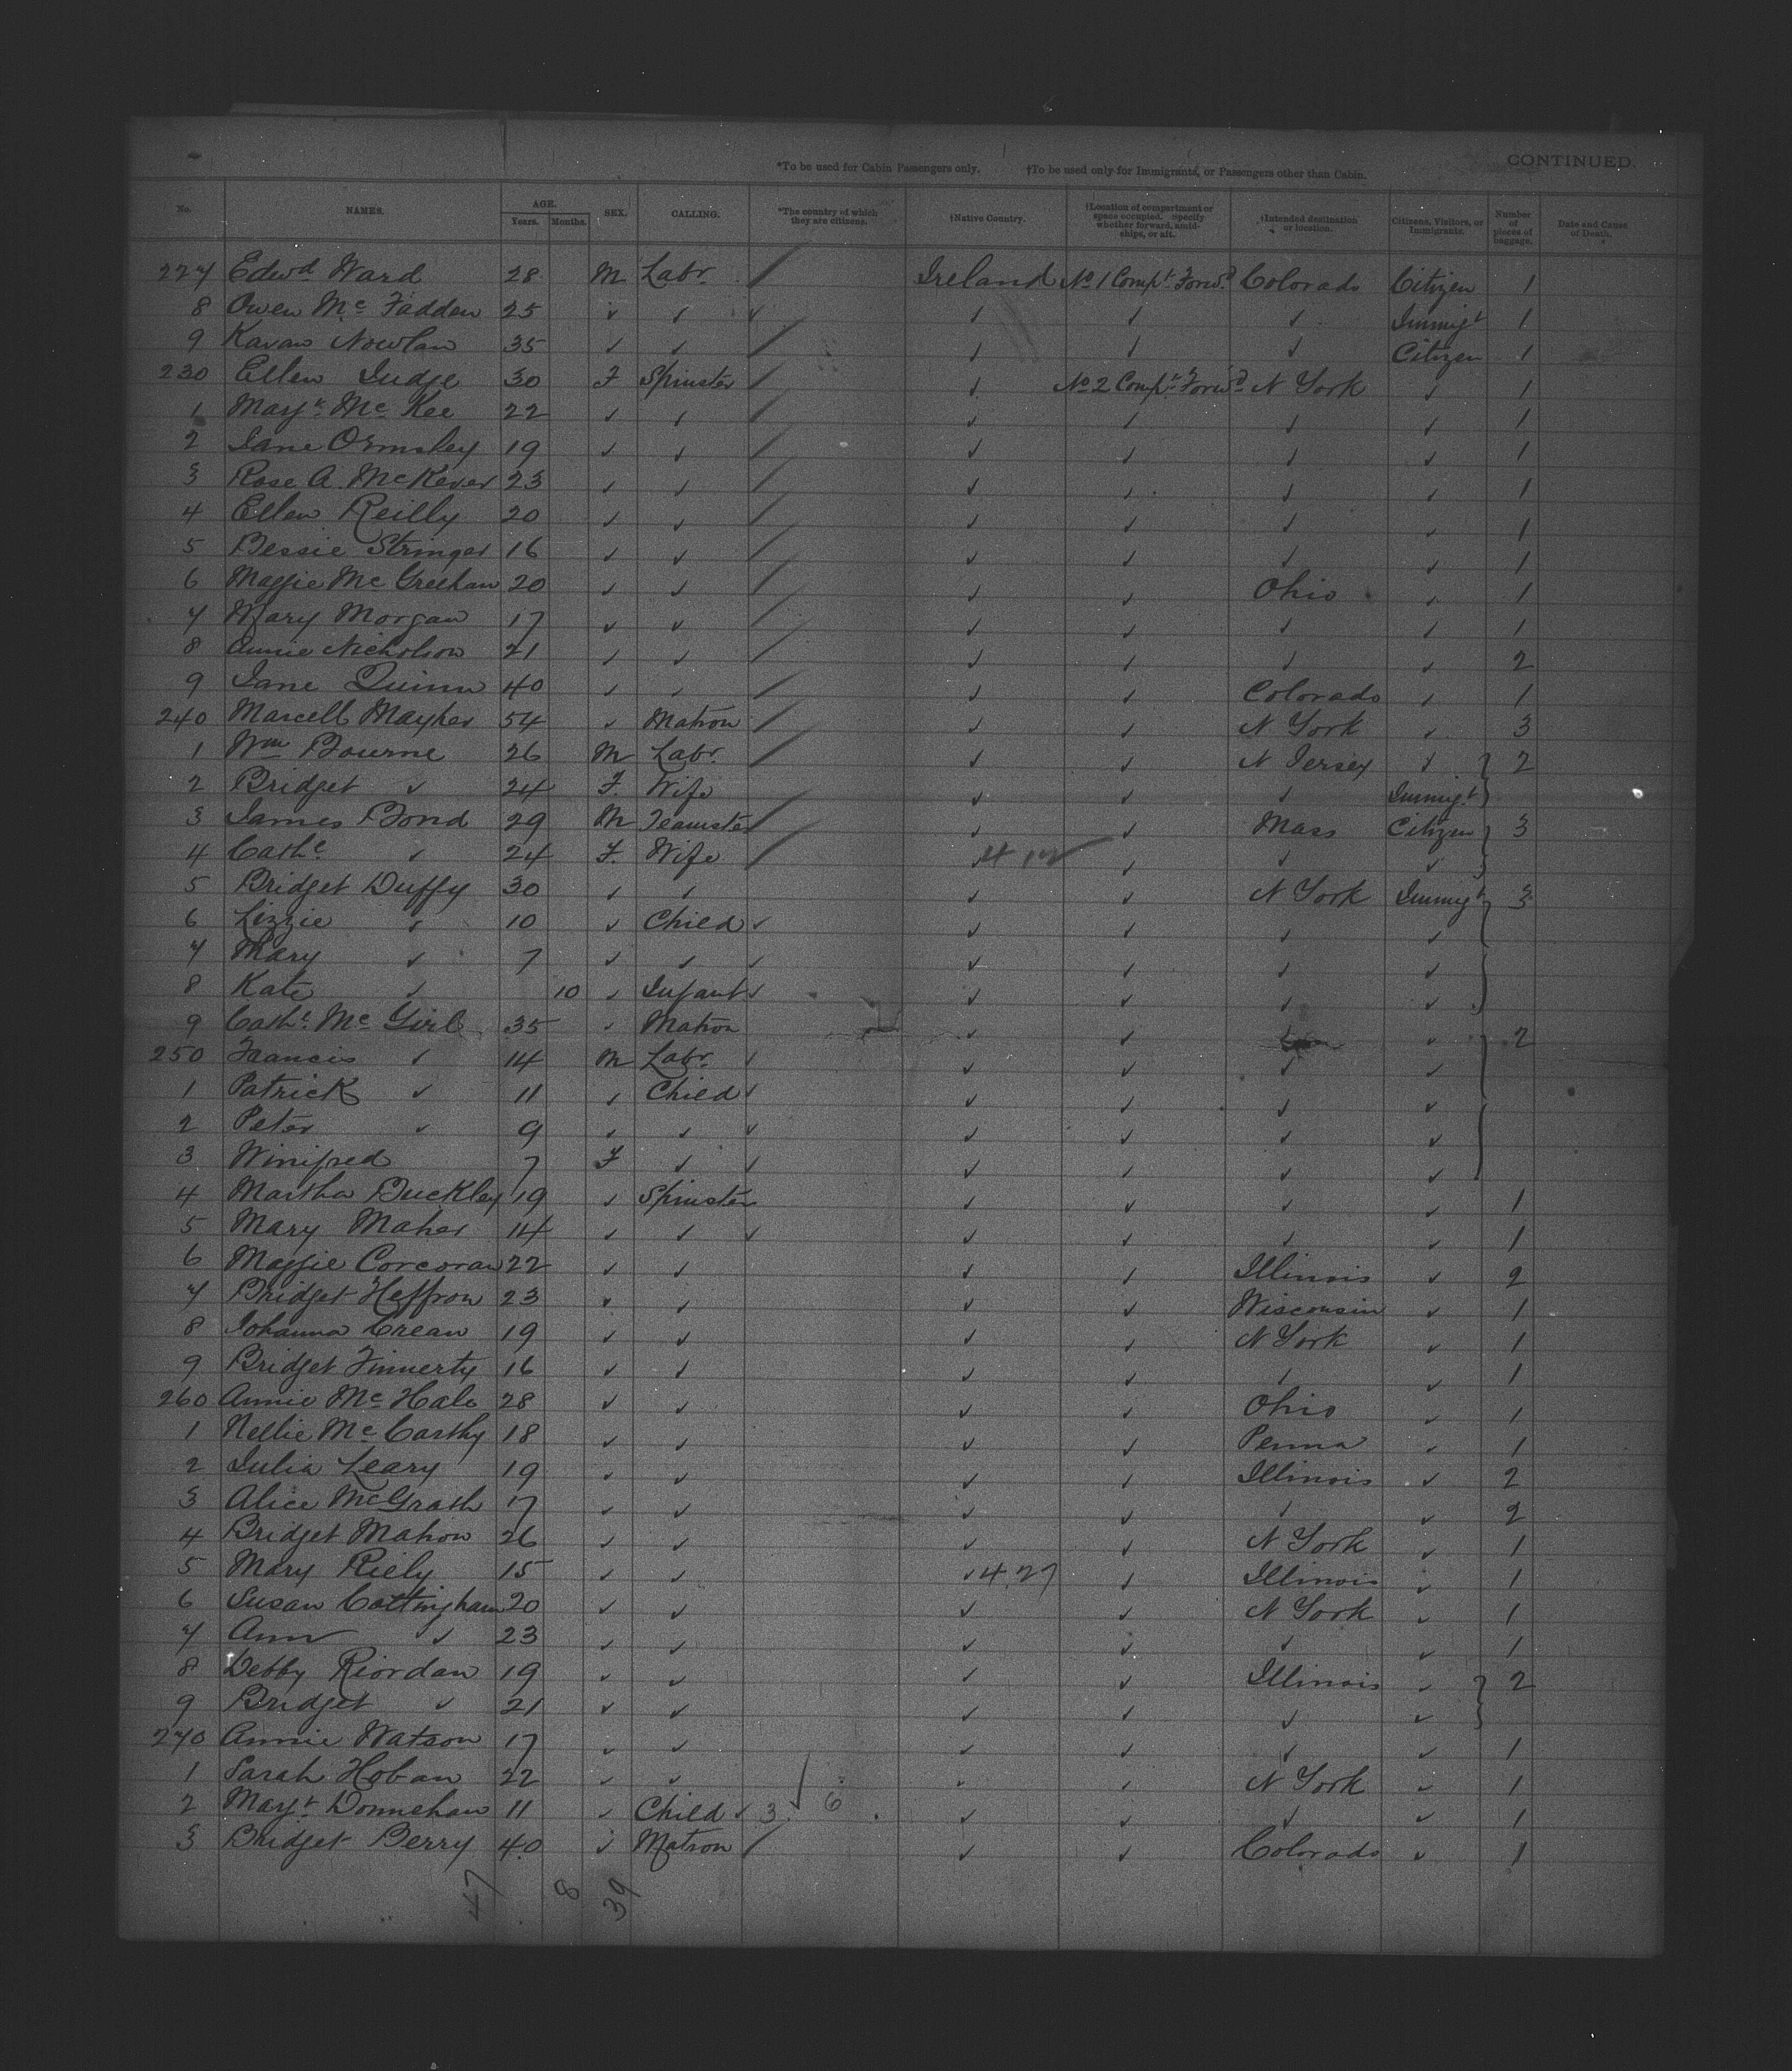 CONTINUED.
*To be used for Cabin Passengers only. †To be used only for Immigrants, or Passengers other than Cabin.
No. NAMES. AGE. Years. Months. SEX. CALLING. *The country of which they are citizens. †Native Country. †Location of compartment or space occupied. Specify whether forward, amidships, or aft. †Intended destination or location. Citizens, Visitors, or Immigrants. Number of pieces of baggage. Date and Cause of Death.
227 Edwd Ward 28 M Labr / Ireland No 1 Compt Forwd Colorado Citizen 1
8 Owen Mc Fadden 25 ✓ ✓ ✓ ✓ ✓ ✓ Immigt 1
9 Kavan Nowlan 35 ✓ ✓ / ✓ ✓ ✓ Citizen 1
230 Ellen Judge 30 F Spinster / ✓ No 2 Compt Forwd N York ✓ 1
1 Mayt Mc Kee 22 ✓ ✓ / ✓ ✓ ✓ ✓ 1
2 Jane Ormsley 19 ✓ ✓ / ✓ ✓ ✓ ✓ 1
3 Rose A. McKever 23 ✓ ✓ / ✓ ✓ ✓ ✓ 1
4 Ellen Reilly 20 ✓ ✓ / ✓ ✓ ✓ ✓ 1
5 Bessie Stringer 16 ✓ ✓ / ✓ ✓ ✓ ✓ 1
6 Maggie Mc Greehan 20 ✓ ✓ / ✓ ✓ Ohio ✓ 1
7 Mary Morgan 17 ✓ ✓ / ✓ ✓ ✓ ✓ 1
8 Annie Nicholson 21 ✓ ✓ / ✓ ✓ ✓ ✓ 2
9 Jane Quinn 40 ✓ ✓ / ✓ ✓ Colorado ✓ 1
240 Marcell Mayher 54 ✓ Matron / ✓ ✓ N York ✓ 3
1 Wm Bourne 26 M Labr / ✓ ✓ N Jersey ✓ } 2
2 Bridget ✓ 24 F. Wife ✓ ✓ ✓ Immigt }
3 James Bond 29 M Teamster / ✓ ✓ Mass Citizen } 3
4 Cathe ✓ 24 F. Wife / ✓ ✓ ✓ ✓ }
5 Bridget Duffy 30 ✓ ✓ ✓ ✓ N York Immigt } 3
6 Lizzie ✓ 10 ✓ Child ✓ ✓ ✓ ✓ ✓
7 Mary ✓ 7 ✓ ✓ ✓ ✓ ✓ ✓ ✓
8 Kate ✓ 10 ✓ Infant ✓ ✓ ✓ ✓ ✓
9 Cathe Mc Girl 35 ✓ Matron ✓ ✓ ✓ ✓ } 2
250 Francis ✓ 14 M Labr ✓ ✓ ✓ ✓ ✓
1 Patrick ✓ 11 ✓ Child ✓ ✓ ✓ ✓ ✓
2 Peter ✓ 9 ✓ ✓ ✓ ✓ ✓ ✓ ✓
3 Winifred 7 F ✓ ✓ ✓ ✓ ✓ ✓
4 Martha Buckley 19 ✓ Spinster ✓ ✓ ✓ ✓ 1
5 Mary Maher 14 ✓ ✓ ✓ ✓ ✓ ✓ ✓ 1
6 Maggie Corcoran 22 ✓ ✓ ✓ ✓ Illinois ✓ 2
7 Bridget Heffron 23 ✓ ✓ ✓ ✓ Wisconsin ✓ 1
8 Johanna Crean 19 ✓ ✓ ✓ ✓ N York ✓ 1
9 Bridget Finnerty 16 ✓ ✓ ✓ ✓ ✓ ✓ 1
260 Annie Mc Hale 28 ✓ ✓ ✓ ✓ Ohio ✓ 1
1 Nellie Mc Carthy 18 ✓ ✓ ✓ ✓ Penna ✓ 1
2 Julia Leary 19 ✓ ✓ ✓ ✓ Illinois ✓ 2
3 Alice McGrath 17 ✓ ✓ ✓ ✓ ✓ ✓ 2
4 Bridget Mahon 26 ✓ ✓ ✓ ✓ N York ✓ 1
5 Mary Riely 15 ✓ ✓ ✓ 4.27 ✓ Illinois ✓ 1
6 Susan Cottingham 20 ✓ ✓ ✓ ✓ N York ✓ 1
7 Ann ✓ 23 ✓ ✓ ✓ ✓ ✓ ✓ 1
8 Debby Riordan 19 ✓ ✓ ✓ ✓ Illinois ✓ } 2
9 Bridget ✓ 21 ✓ ✓ ✓ ✓ ✓ ✓ }
270 Annie Watson 17 ✓ ✓ ✓ ✓ ✓ ✓ 1
1 Sarah Hoban 22 ✓ ✓ ✓ ✓ N York ✓ 1
2 Mayt Donnehan 11 ✓ Child ✓ 3 ✓ 6 ✓ ✓ ✓ ✓ 1
3 Bridget Berry 40 ✓ Matron / ✓ ✓ Colorado ✓ 1
47 8 39